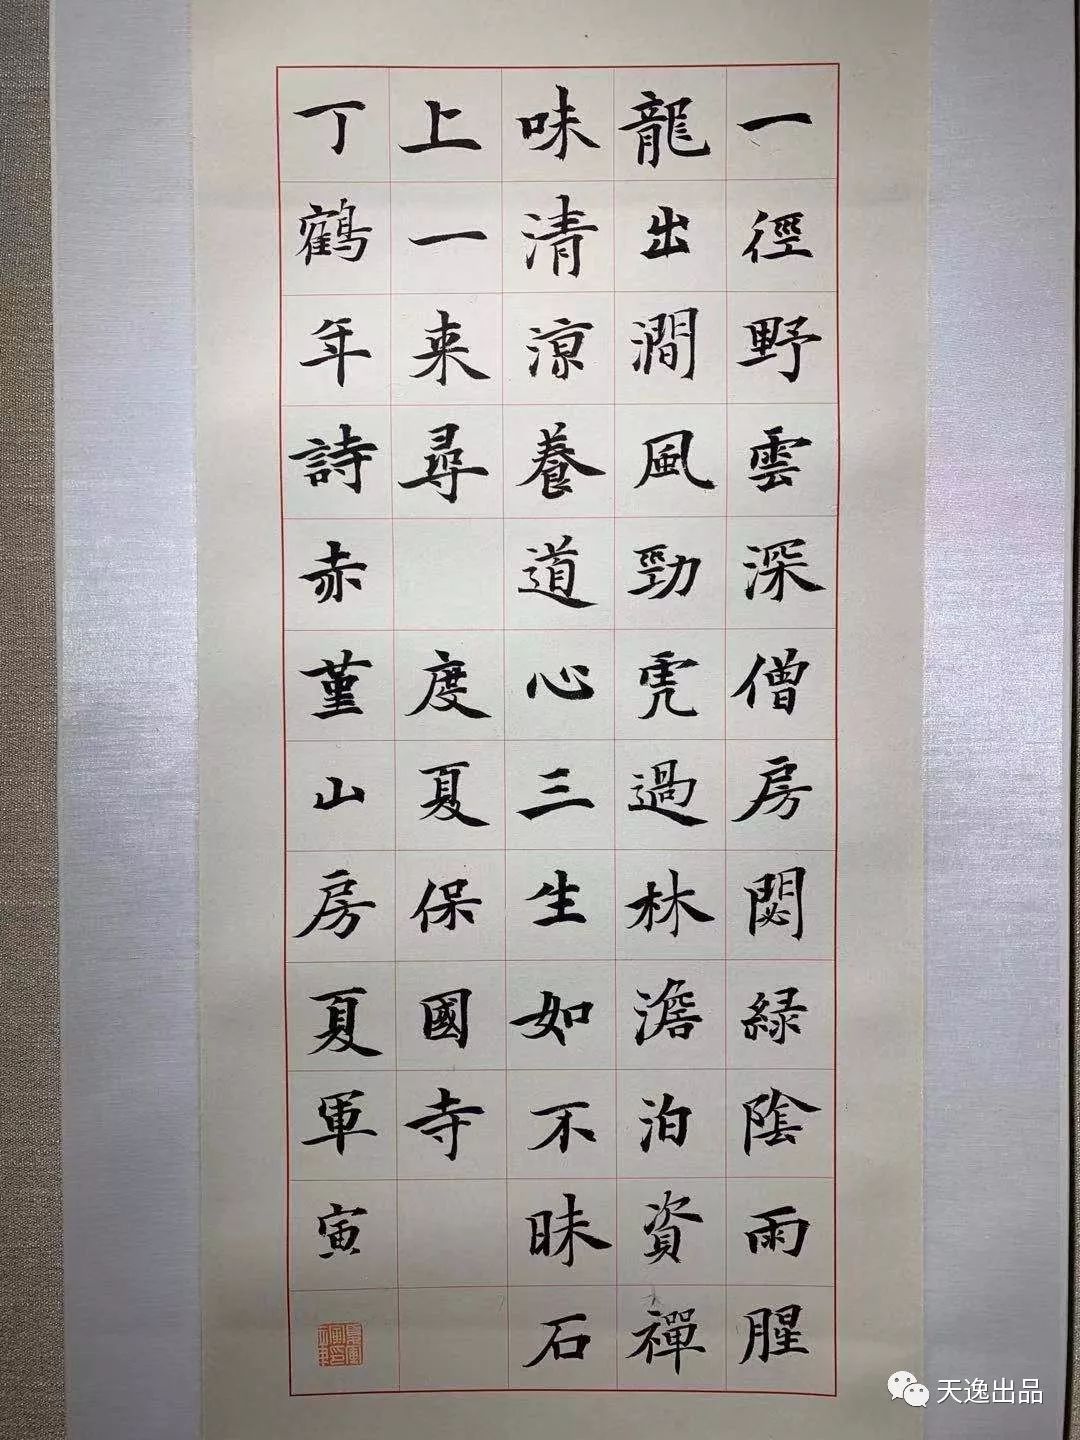 一徑野雲深僧房閟緑陰雨腥
龍出澗風勁虎過林澹泊資禪
味清涼養道心三生如不昧石
上一来尋 度夏保國寺
丁鶴年詩赤堇山房夏軍寅
天逸出品